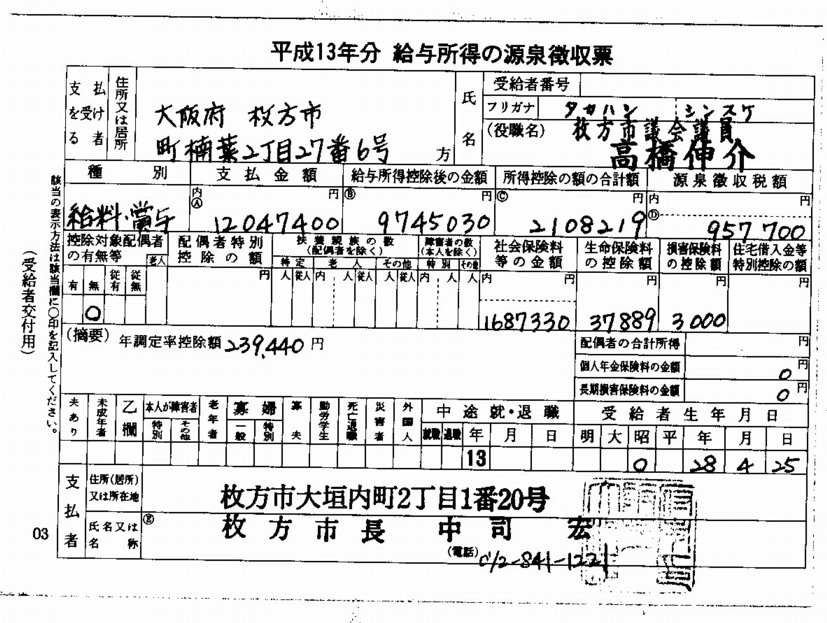 平成13年分 給与所得の源泉徴収票
支払を受ける者
住所又は居所
大阪府 枚方市
町楠葉2丁目27番6号 方
氏名
受給者番号
フリガナ タカハシ シンスケ
(役職名) 枚方市議会議員
高橋伸介
種別 支払金額 給与所得控除後の金額 所得控除の額の合計額 源泉徴収税額
給料・賞与 内 Ⓐ 12047400 円 Ⓑ 9745030 円 Ⓒ 2108219 円 内 Ⓓ 957700 円
控除対象配偶者の有無等 老人
配偶者特別控除の額
扶養親族の数(配偶者を除く) 特定 老人 その他
障害者の数(本人を除く) 特別 その他
社会保険料等の金額 生命保険料の控除額 損害保険料の控除額 住宅借入金等特別控除の額
有 無 従有 従無 円 人 従人 内 人 従人 人 従人 内 人 人 内 円 円 円 円
0 1687330 37889 3000
(摘要) 年調定率控除額 239,440 円
配偶者の合計所得 円
個人年金保険料の金額 0 円
長期損害保険料の金額 0 円
夫あり 未成年者 乙欄 本人が障害者 特別 その他 老年者 寡婦 一般 特別 寡夫 勤労学生 死亡退職 災害者 外国人 中途就・退職 受給者生年月日
就職 退職 年 月 日 明 大 昭 平 年 月 日
13 0 28 4 25
支払者
住所(居所)又は所在地 枚方市大垣内町2丁目1番20号
氏名又は名称 Ⓔ 枚方市長 中司 宏
(電話) 072-841-1221
03
該当の表示方法は該当欄に○印を記入してください。
(受給者交付用)